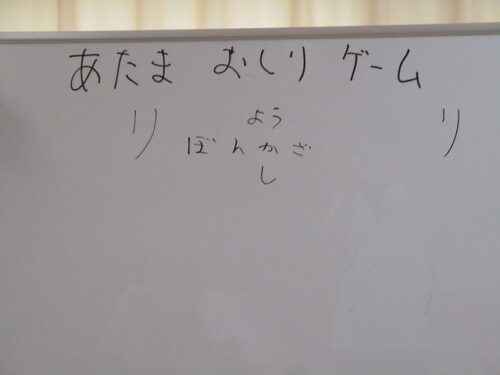 あたま おしり ゲーム
よう
り ぼんかざ り
し